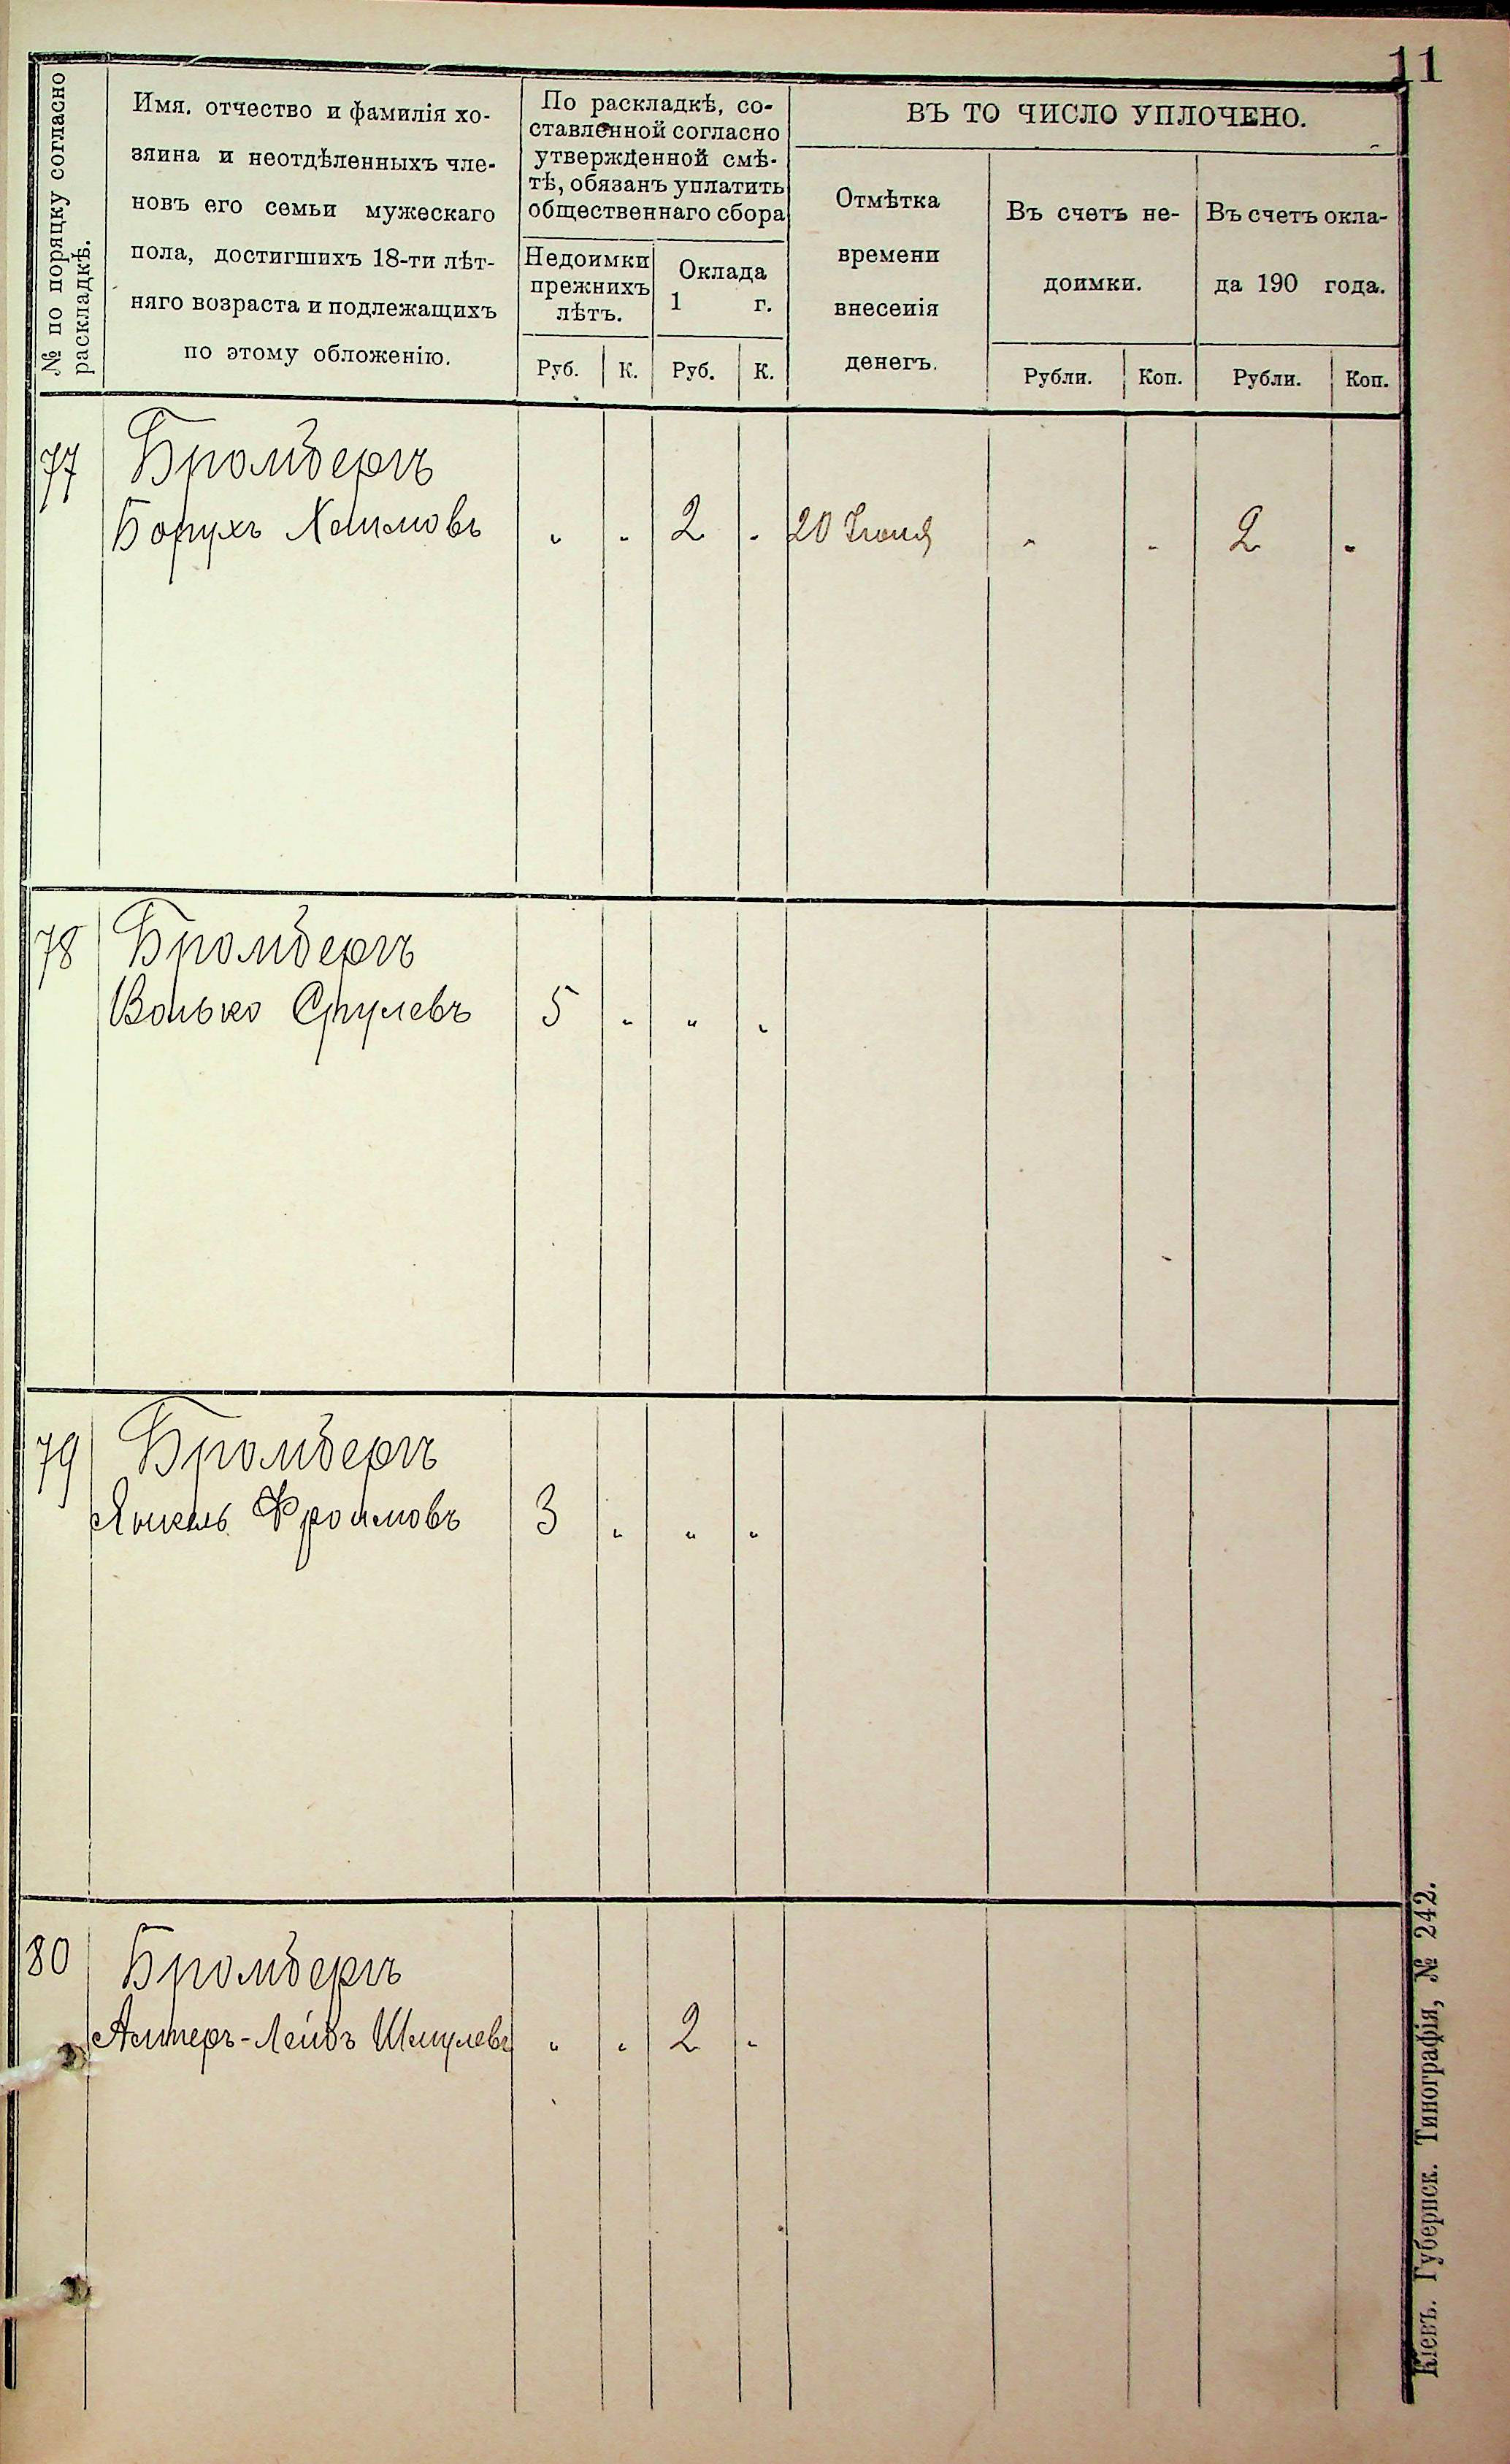 11
№ по поряцку согласно
раскладкѣ.
Имя. отчество и фамилія хо-
зяина и неотдѣленныхъ чле-
новъ его семьи мужескаго
пола, достигшихъ 18-ти лѣт-
няго возраста и подлежащихъ
по этому обложенію.
По раскладкѣ, со-
ставленной согласно
утвержденной смѣ-
тѣ, обязанъ уплатить
общественнаго сбора
Недоимки
прежнихъ
лѣтъ.
Оклада
1 г.
Руб. К. Руб. К.
ВЪ ТО ЧИСЛО УПЛОЧЕНО.
Отмѣтка
времени
внесенія
денегъ.
Въ счетъ не-
доимки.
Въ счетъ окла-
да 190 года.
Рубли. Коп. Рубли. Коп.
77 Бромбергъ
Борухъ Хаимовъ " " 2 " 20 Іюня " " 2 "
78 Бромбергъ
Волько Срулевъ 5 " " "
79 Бромбергъ
Янкель Фроимовъ 3 " " "
80 Бромбергъ
Алтеръ-Лейбъ Шмулевъ " " 2 "
Кіевъ. Губернск. Типографія, № 242.